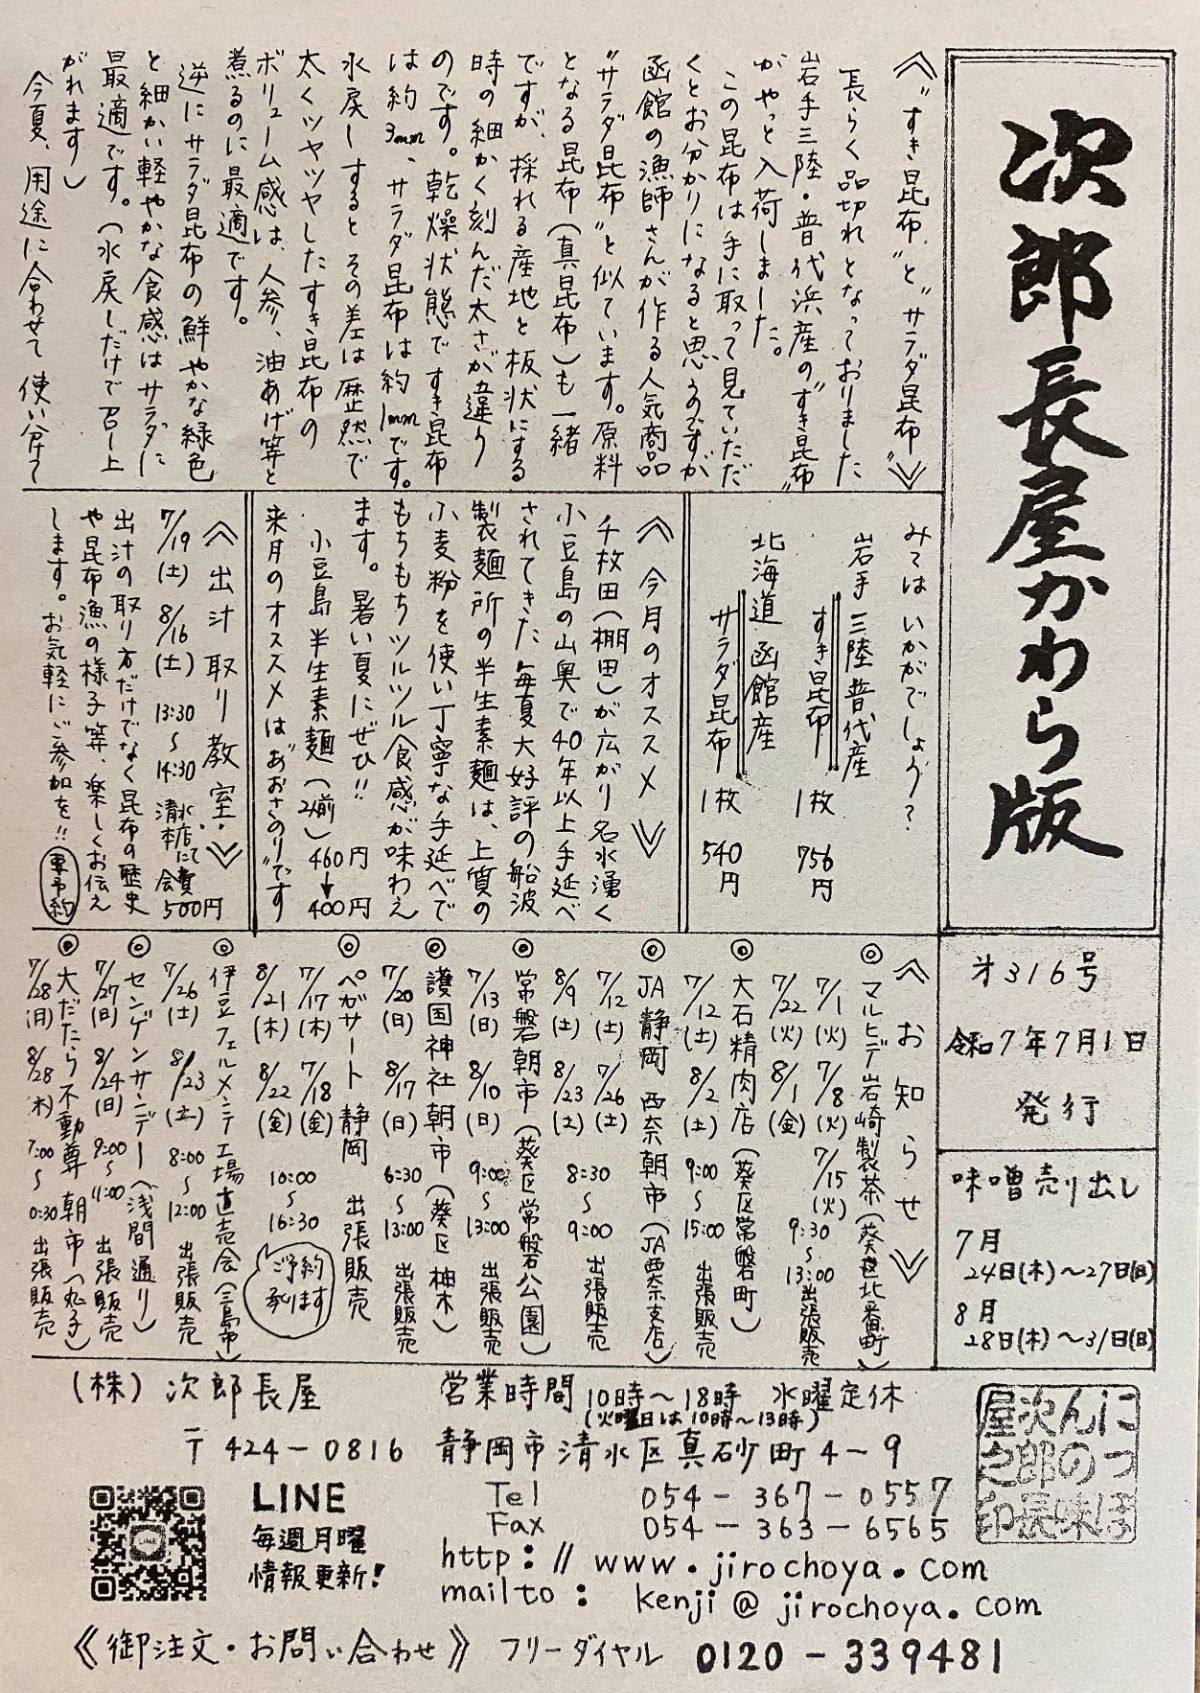 次郎長屋かわら版
才316号
令和7年7月1日
発行
味噌売り出し
7月
24日(木)～27日(日)
8月
28日(木)～31日(日)
≪"すき昆布"と"サラダ昆布"≫
長らく品切れとなっておりました
岩手三陸・普代浜産の"すき昆布"
がやっと入荷しました。
この昆布は手に取って見ていただ
くとお分かりになると思うのですが
函館の漁師さんが作る人気商品
"サラダ昆布"と似ています。原料
となる昆布(真昆布)も一緒
ですが、採れる産地と板状にする
時の細かく刻んだ太さが違う
のです。乾燥状態ですき昆布
は約3mm、サラダ昆布は約1mmです。
水戻しするとその差は歴然で
太くツヤツヤしたすき昆布の
ボリューム感は、人参、油あげ等と
煮るのに最適です。
逆にサラダ昆布の鮮やかな緑色
と細かい軽やかな食感はサラダに
最適です。(水戻しだけで召し上
がれます)
今夏、用途に合わせて使い分けて
みてはいかがでしょう?
岩手 三陸普代産
すき昆布 1枚 756円
北海道 函館産
サラダ昆布 1枚 540円
≪今月のオススメ≫
千枚田(棚田)が広がり名水湧く
小豆島の山奥で40年以上手延べ
されてきた毎夏大好評の船波
製麺所の半生素麺は、上質の
小麦粉を使い丁寧な手延べで
もちもちツルツル食感が味わえ
ます。暑い夏にぜひ!!
小豆島 半生素麺(2人前) 460円→400円
来月のオススメは"あおさのり"です
≪出汁取り教室≫
7/19(土) 8/16(土) 13:30～14:30 清水本店にて 会費500円
出汁の取り方だけでなく昆布の歴史
や昆布漁の様子等、楽しくお伝え
します。お気軽にご参加を!! 要予約
≪お知らせ≫
◎マルヒデ岩崎製茶(葵区北番町)
7/1(火) 7/8(火) 7/15(火)
7/22(火) 8/1(金) 9:30～13:00 出張販売
◎大石精肉店(葵区常磐町)
7/12(土) 8/2(土) 9:00～15:00 出張販売
◎JA静岡 西奈朝市(JA西奈支店)
7/12(土) 7/26(土)
8/9(土) 8/23(土) 8:30～9:00 出張販売
◎常磐朝市(葵区常磐公園)
7/13(日) 8/10(日) 9:00～13:00 出張販売
◎護国神社朝市(葵区 柚木)
7/20(日) 8/17(日) 6:30～13:00 出張販売
◎ペガサート静岡 出張販売
7/17(木) 7/18(金)
8/21(木) 8/22(金) 10:00～16:30 ご予約承ります
◎伊豆フェルメンテ工場直売会(三島市)
7/26(土) 8/23(土) 8:00～12:00 出張販売
◎センゲンサンデー(浅間通り)
7/27(日) 8/24(日) 9:00～11:00 出張販売
◎大だたら不動尊 朝市(丸子)
7/28(月) 8/28(木) 7:00～ 出張販売
(株)次郎長屋 営業時間 10時～18時 水曜定休
(火曜日は10時～13時)
〒424-0816 静岡市清水区真砂町4-9
LINE
毎週月曜
情報更新!
Tel 054-367-0557
Fax 054-363-6565
http://www.jirochoya.com
mailto: kenji@jirochoya.com
にっぽんの味次郎長屋之印
《御注文・お問い合わせ》 フリーダイヤル 0120-339481